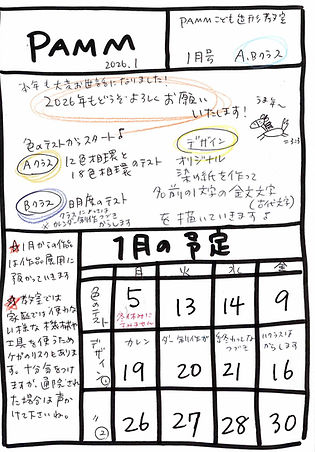 PAMM
2026.1
PAMMこども造形教室
1月号 A,Bクラス
本年も大変お世話になりました!
2026年もどうぞよろしくお願い
いたします!
色のテストからスタート♪
Aクラス 12色相環と
18色相環のテスト
Bクラス 明度のテスト
※カレンダー制作つづき
からします
デザイン
オリジナル
染め紙を作って
名前の1文字の金文文字
(古代文字)
を描いていきます♪
☆1月からの作品
は作品展用に
預かっていきます
☆教室では
家庭では使わな
い様な機械や
工具を使うため
ケガのリスクもありま
す。十分気をつけ
ますが、通院され
た場合は声か
けて下さいね。
1月の予定
月 火 水 金
色のテスト 5 13 14 9
冬休み
デザイン① 19 20 21 16
カレンダー制作が
終わったら
つづき
からします
〃② 26 27 28 30